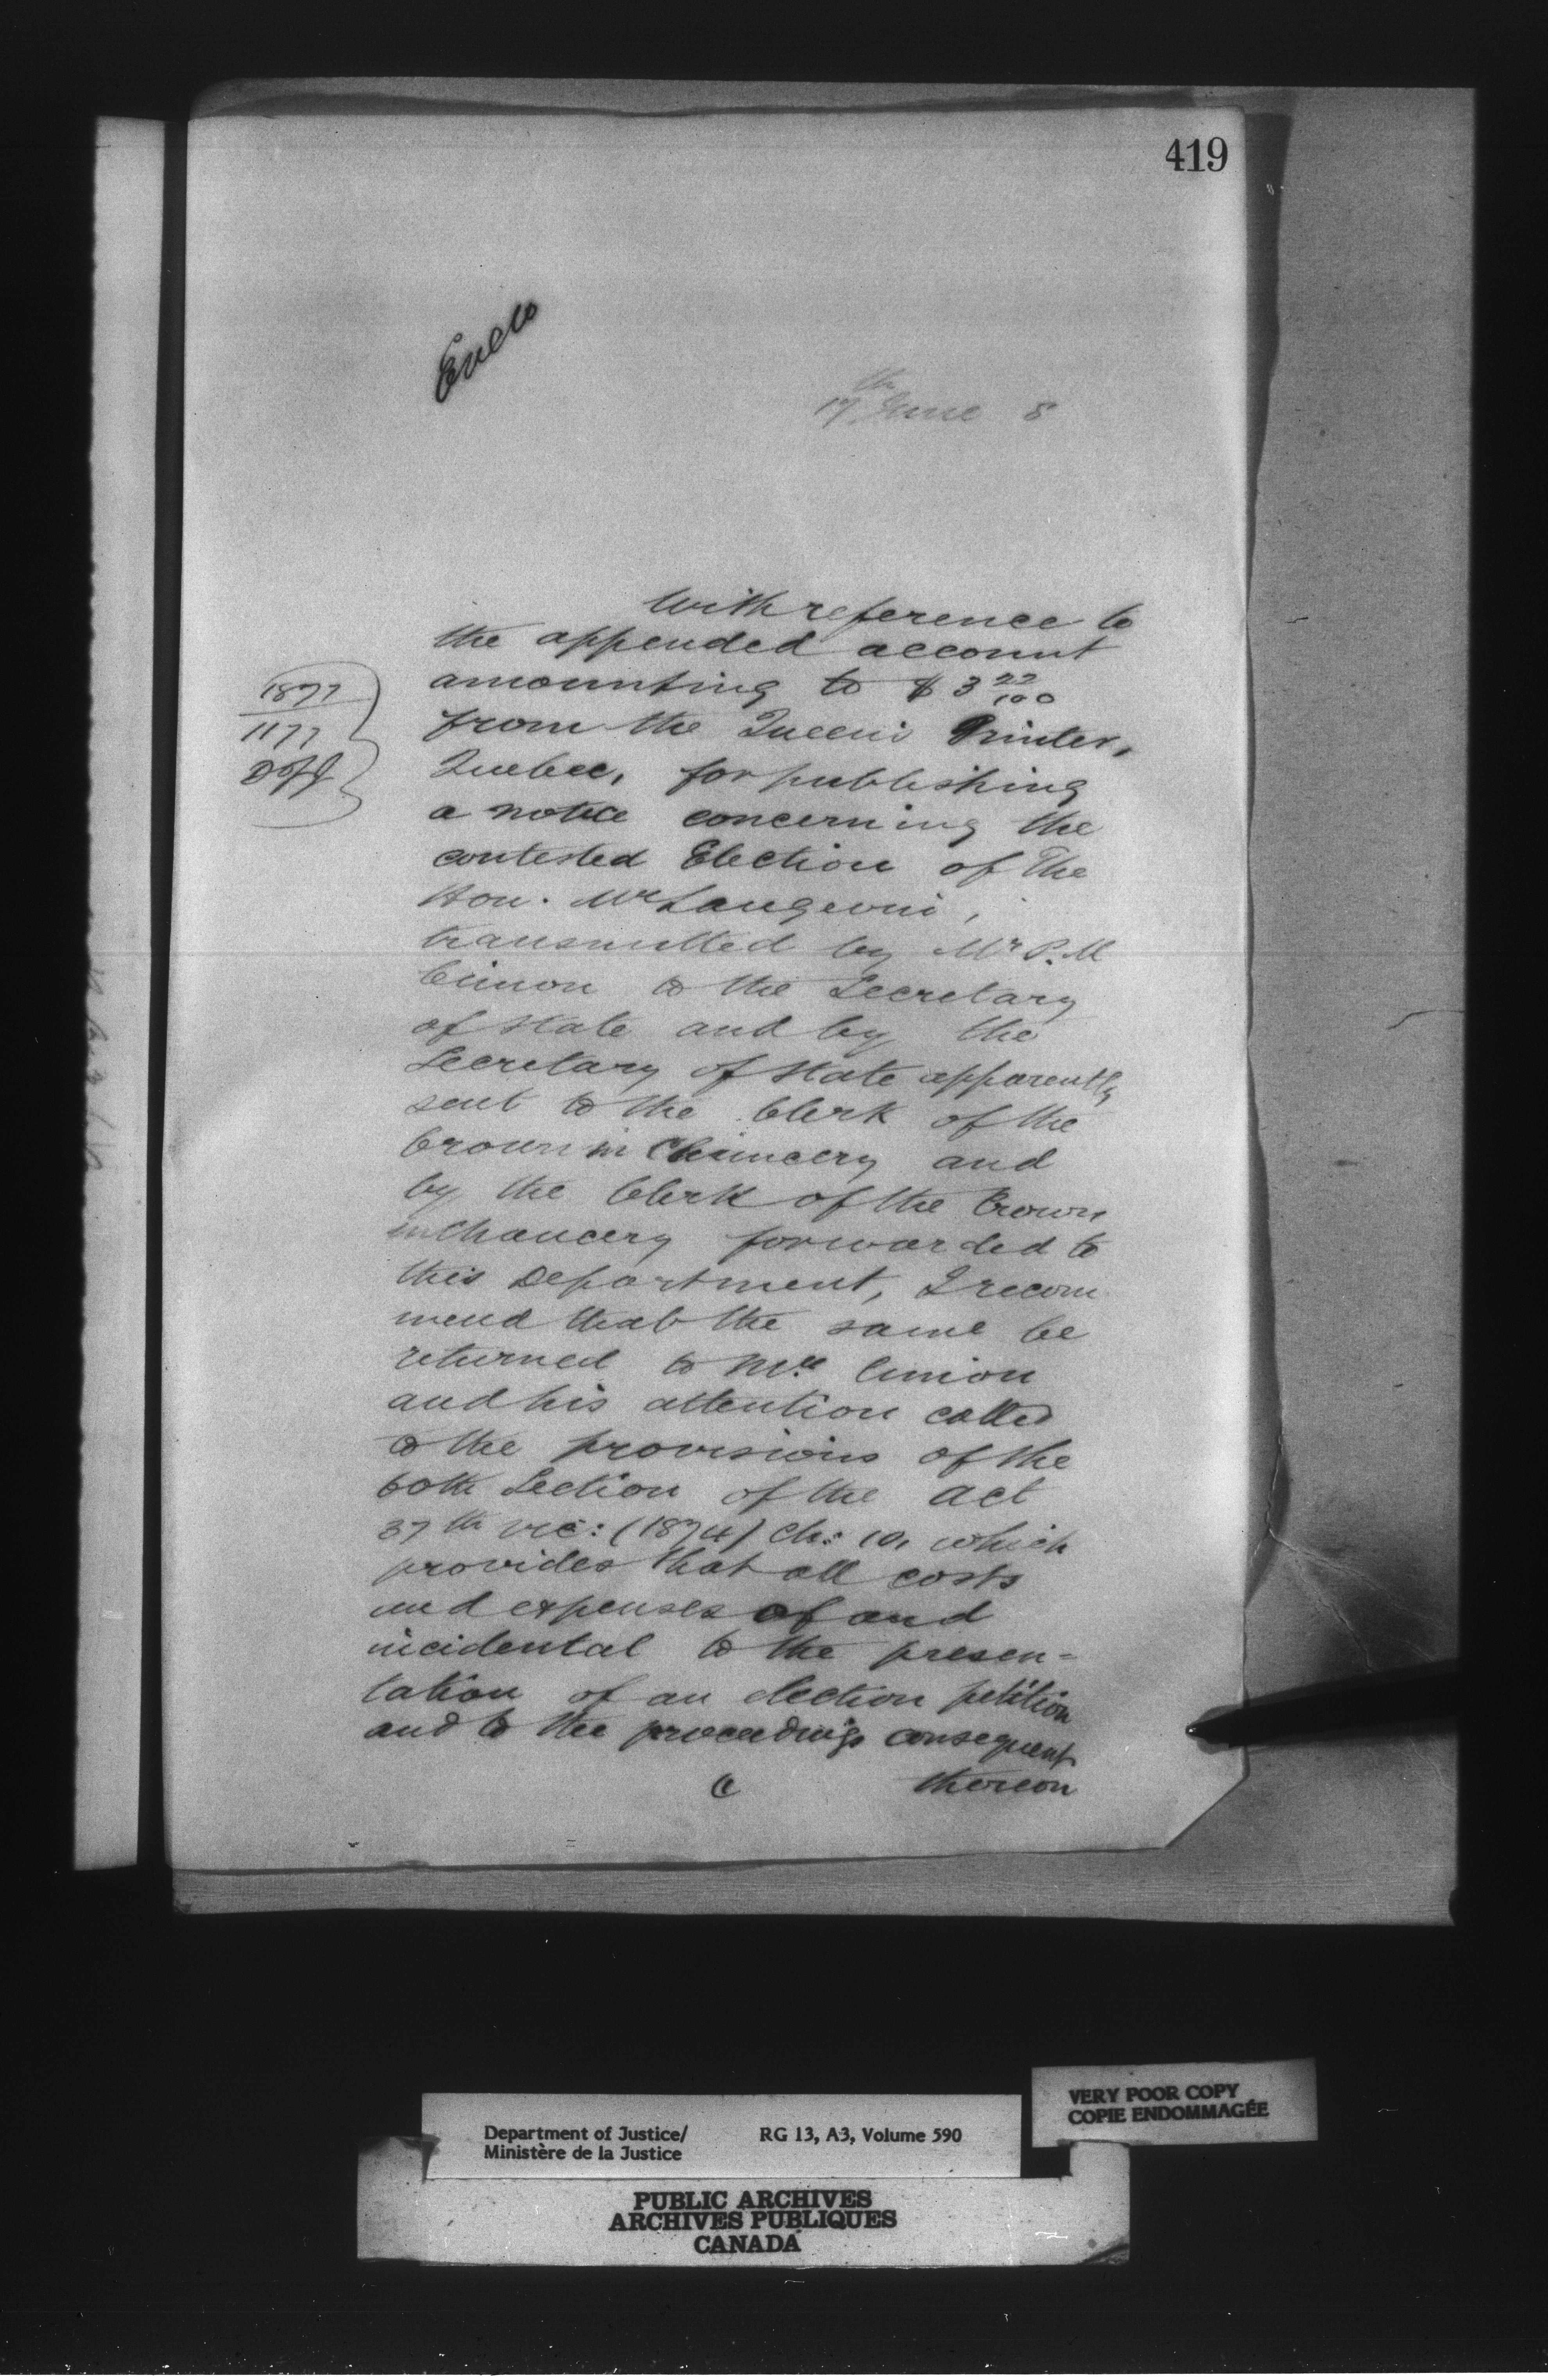 419
Encs
17th June 8
With reference to
the appended account
amounting to $ 3 22/100
from the Queen's Printer,
1877
1177
D of J
Quebec, for publishing
a notice concerning the
contested Election of The
Hon. Mr Langevin,
transmitted by Mr P. M
Cimon to the Secretary
of State and by the
Secretary of State apparently
sent to the Clerk of the
Crown in Chancery and
by the Clerk of the Crown
in Chancery forwarded to
this Department, I recom
mend that the same be
returned to Mr. Cimon
and his attention called
to the provisions of the
60th Section of the Act
37th Vic: (1874) Ch: 10, which
provides that all costs
and expenses of and
incidental to the presen=
tation of an election petition
and to the proceedings consequent
thereon
Department of Justice/ RG 13, A3, Volume 590
Ministère de la Justice
VERY POOR COPY
COPIE ENDOMMAGÉE
PUBLIC ARCHIVES
ARCHIVES PUBLIQUES
CANADA